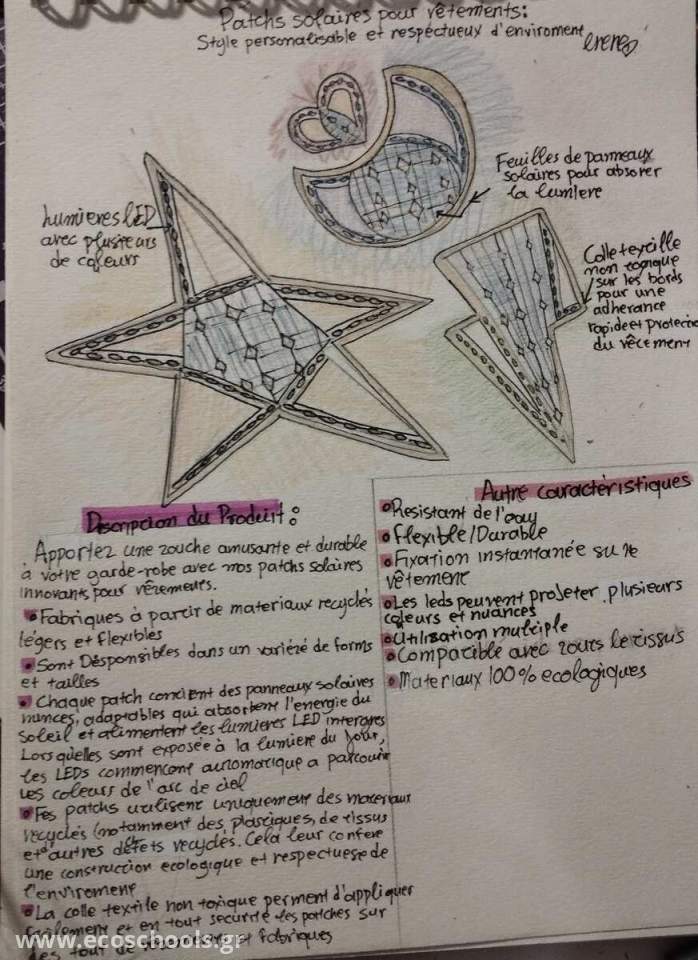 Patchs solaires pour vêtements:
Style personalisable et respectueux d'enviroment
erene
Lumieres LED
avec plusieurs
de couleurs
Feuilles de panneaux
solaires pour absorer
la lumiere
Colle textille
non toxique
sur les bords
pour une
adherance
rapide et protectio
du vêtement
Descripcion du Produit:
Apportez une touche amusante et durable
à votre garde-robe avec nos patchs solaires
innovants pour vêtements.
Fabriques à partir de materiaux recyclés
légers et flexibles
Sont Désponsibles dans un varièté de forms
et tailles
Chaque patch contient des panneaux solaires
minces, adaptables qui absorbent l'energie du
soleil et alimentent les lumieres LED integres
Lorsqu'elles sont exposée à la lumiere du jour,
les LEDs commencont automatique a parcourir
les coleurs de l'arc de ciel
Fes patchs utilisent uniquement des materiaux
recyclés (notamment des plastiques, de tissus
et d'autres défets recyclés. Cela leur confere
une construction ecologique et respectuese de
l'enviroment
La colle textile non toxique perment d'appliquer
facilement et en tout securité les patches sur
des tout de et fabriques
Autre caractéristiques
Resistant de l'eau
Flexible/Durable
Fixation instantanée su le
vêtement
Les leds peuvent projeter plusieurs
coleurs et nuances
Utilisation multiple
Compatible avec tours le tissus
Materiaux 100% ecologiques
www.ecoschools.gr